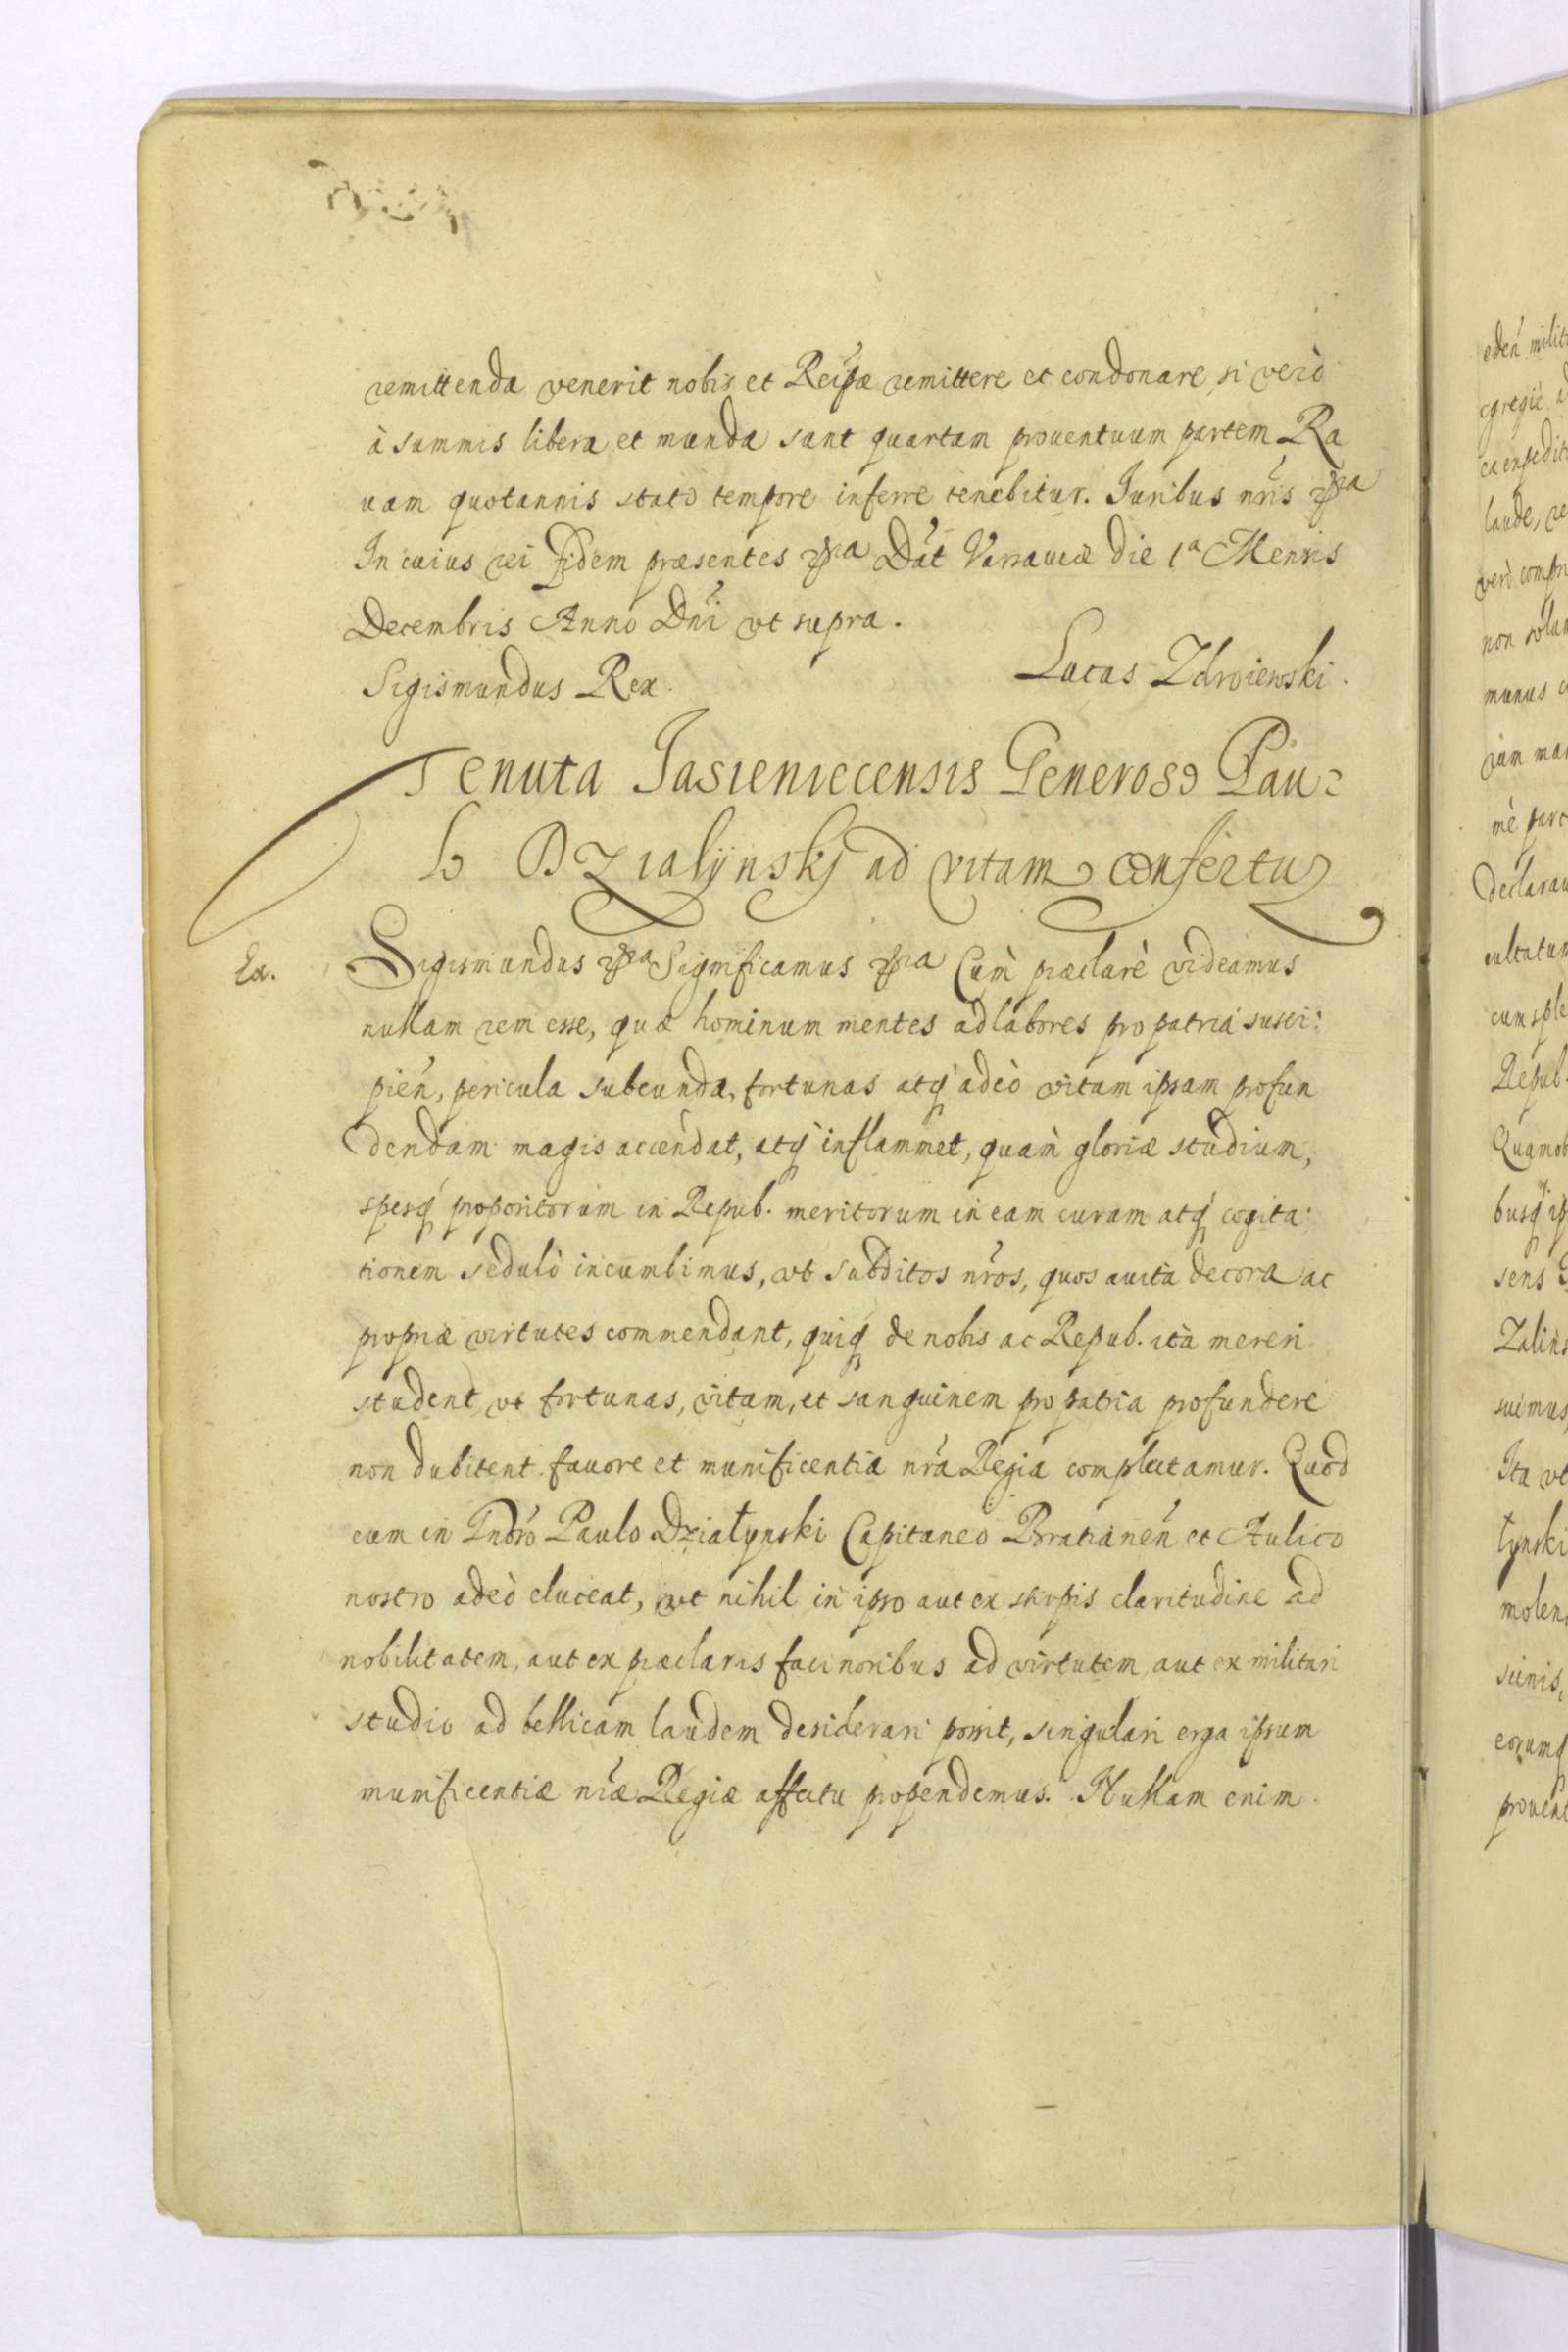 remittenda venerit nobis et Reipæ remittere et condonare, si verò
à summis libera et munda sunt quartam prouentuum partem Ra
uam quotannis stato tempore inferre tenebitur. Iuribus nris &ra
In cuius rei fidem præsentes &ra Dat Varsauiæ die 1a Mensis
Decembris Anno Dni vt supra.
Sigismundus Rex.
Lucas Zdroiewski.
Tenuta Jasieniecensis Generoso Pau:
lo Dzialijnskj ad vitam confertur
Ex.
Sigismundus &ra Significamus &ra Cum præclarè videamus
nullam rem esse, quæ hominum mentes ad labores pro patria susci:
pien, pericula subeunda, fortunas atq adeò vitam ipsam profun
dendam magis accendat, atq inflammet, quam gloriæ studium,
spesq propositorum in Repub. meritorum in eam curam atq cogita:
tionem sedulò incumbimus, vt subditos nros, quos auita decora ac
propriæ virtutes commendant, quiq de nobis ac Repub. ità mereri
student vt fortunas, vitam, et sanguinem pro patria profundere
non dubitent, fauore et munificentia nra Regia complectamur. Quod
cum in Gnoso Paulo Działynski Capitaneo Bratianen et Aulico
nostro adeò eluceat, vt nihil in ipso aut ex stirpis claritudine ad
nobilitatem, aut ex præclaris facinoribus ad virtutem aut ex militari
studio ad bellicam laudem desiderari possit, singulari erga ipsum
munificentiæ nræ Regiæ affectu propendemus. Nullam enim
eden milit
egregiè
laude, re
verò compr
non solum
munus
iam
mè parc
declarau
cultatum
cum sple
Repub.
Quamob
busq ip
sens
Zalins
suimus
Ita vt
łynski
molen
scinis,
eorumq
prouent